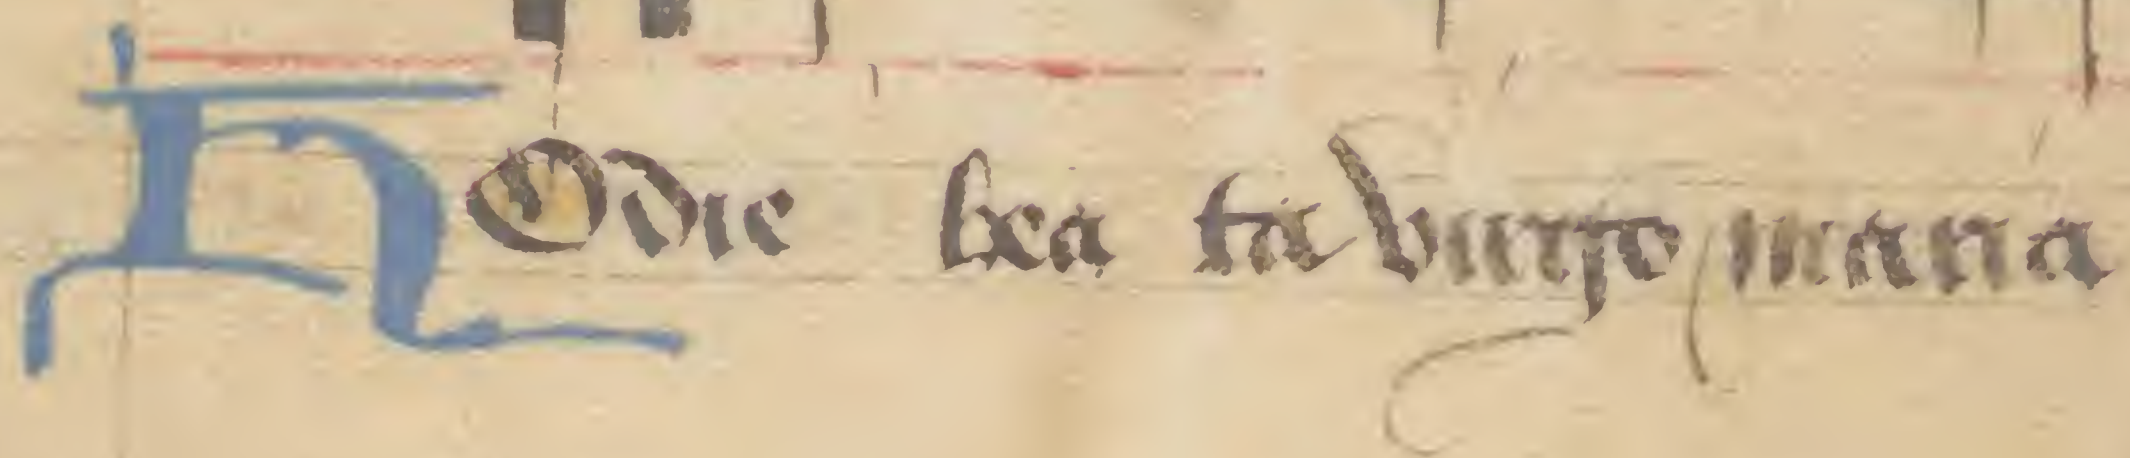 HOdie bea ta virgo maria